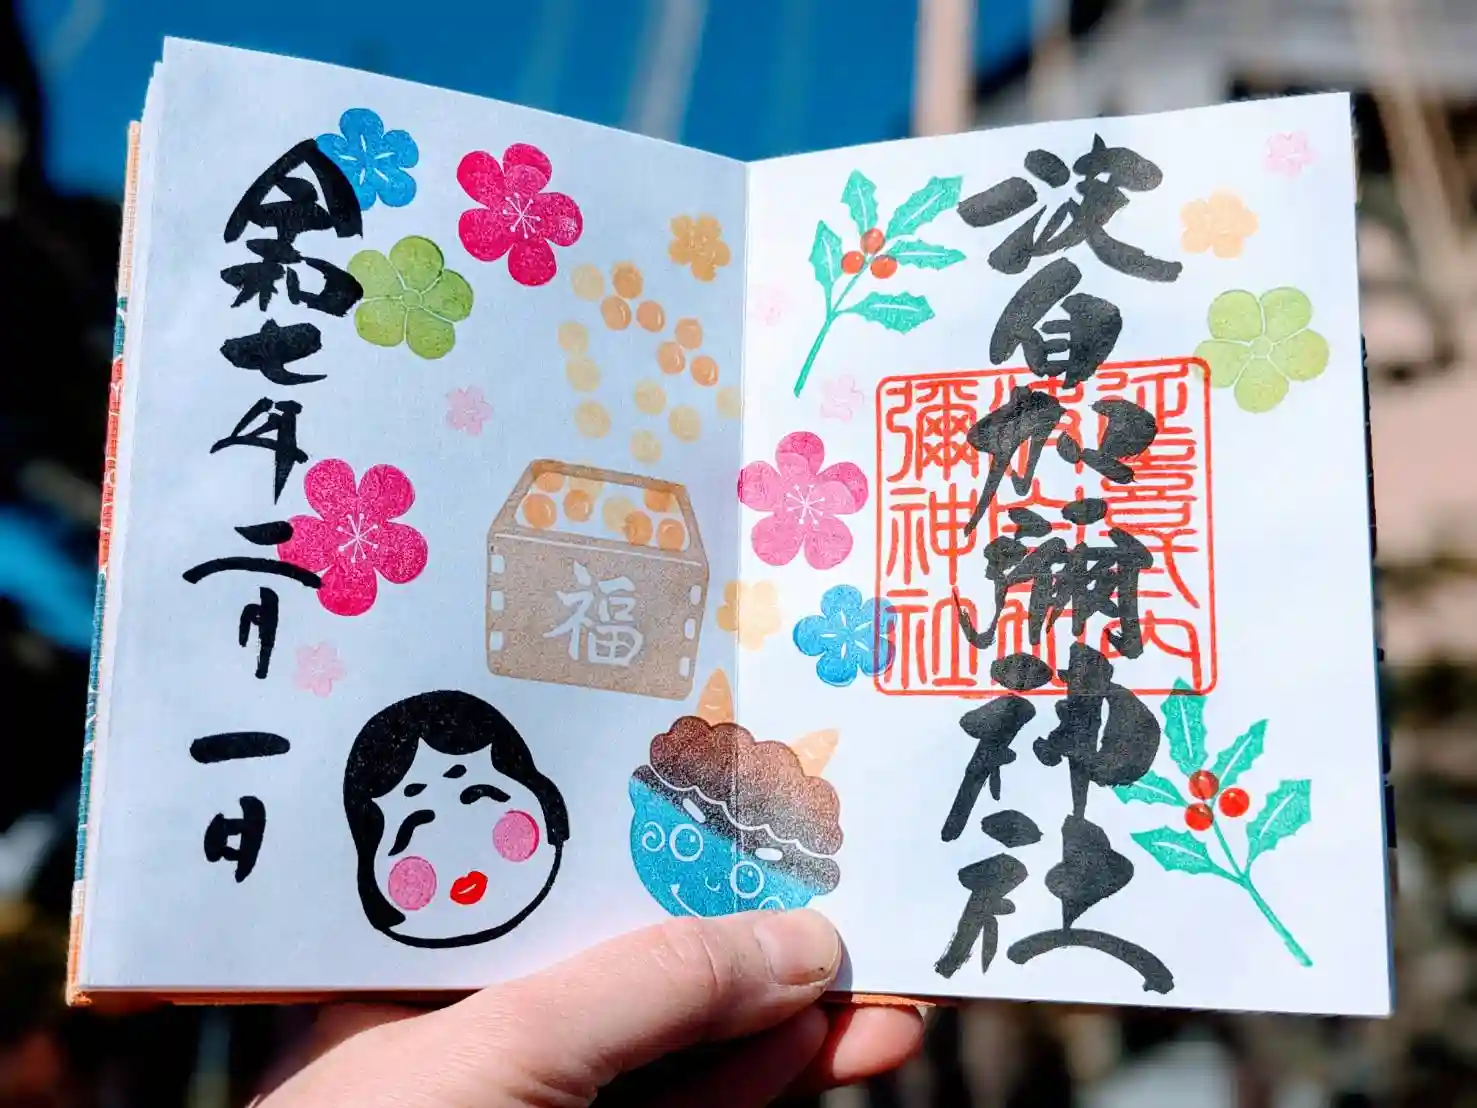 波自加彌神社
延喜式内
波自加
彌神社
令和七年二月一日
福